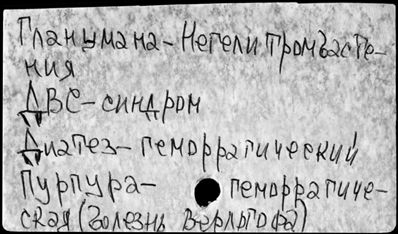 Гланцмана-Негели тромбасте-
ния
ДВС-синдром
Диатез-геморрагический
Пурпура- геморрагиче-
ская (болезнь Верльгофа)